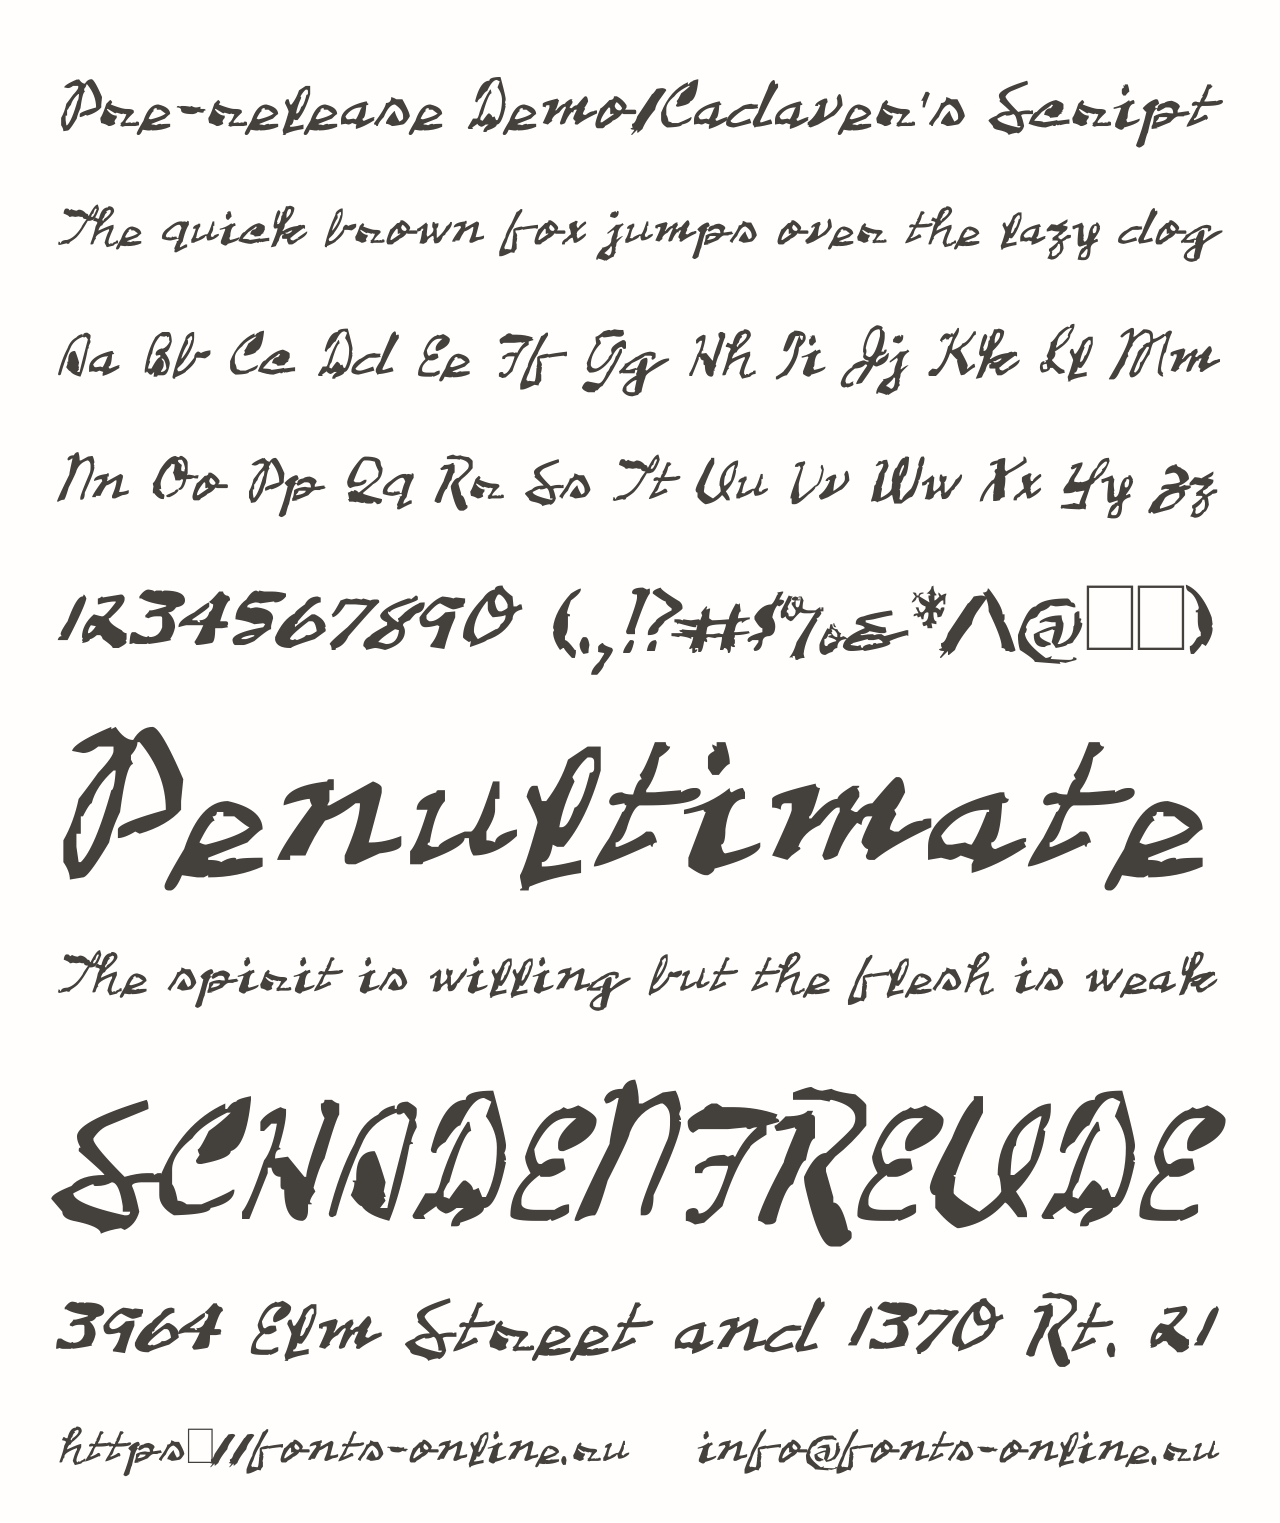 Pre-release Demo/Cadaver's Script
The quick brown fox jumps over the lazy dog
Aa Bb Cc Dd Ee Ff Gg Hh Ii Jj Kk Ll Mm
Nn Oo Pp Qq Rr Ss Tt Uu Vv Ww Xx Yy Zz
1234567890 (.,!?#$%&*/\@□□)
Penultimate
The spirit is willing but the flesh is weak
SCHADENFREUDE
3964 Elm Street and 1370 Rt. 21
https□//fonts-online.ru info@fonts-online.ru